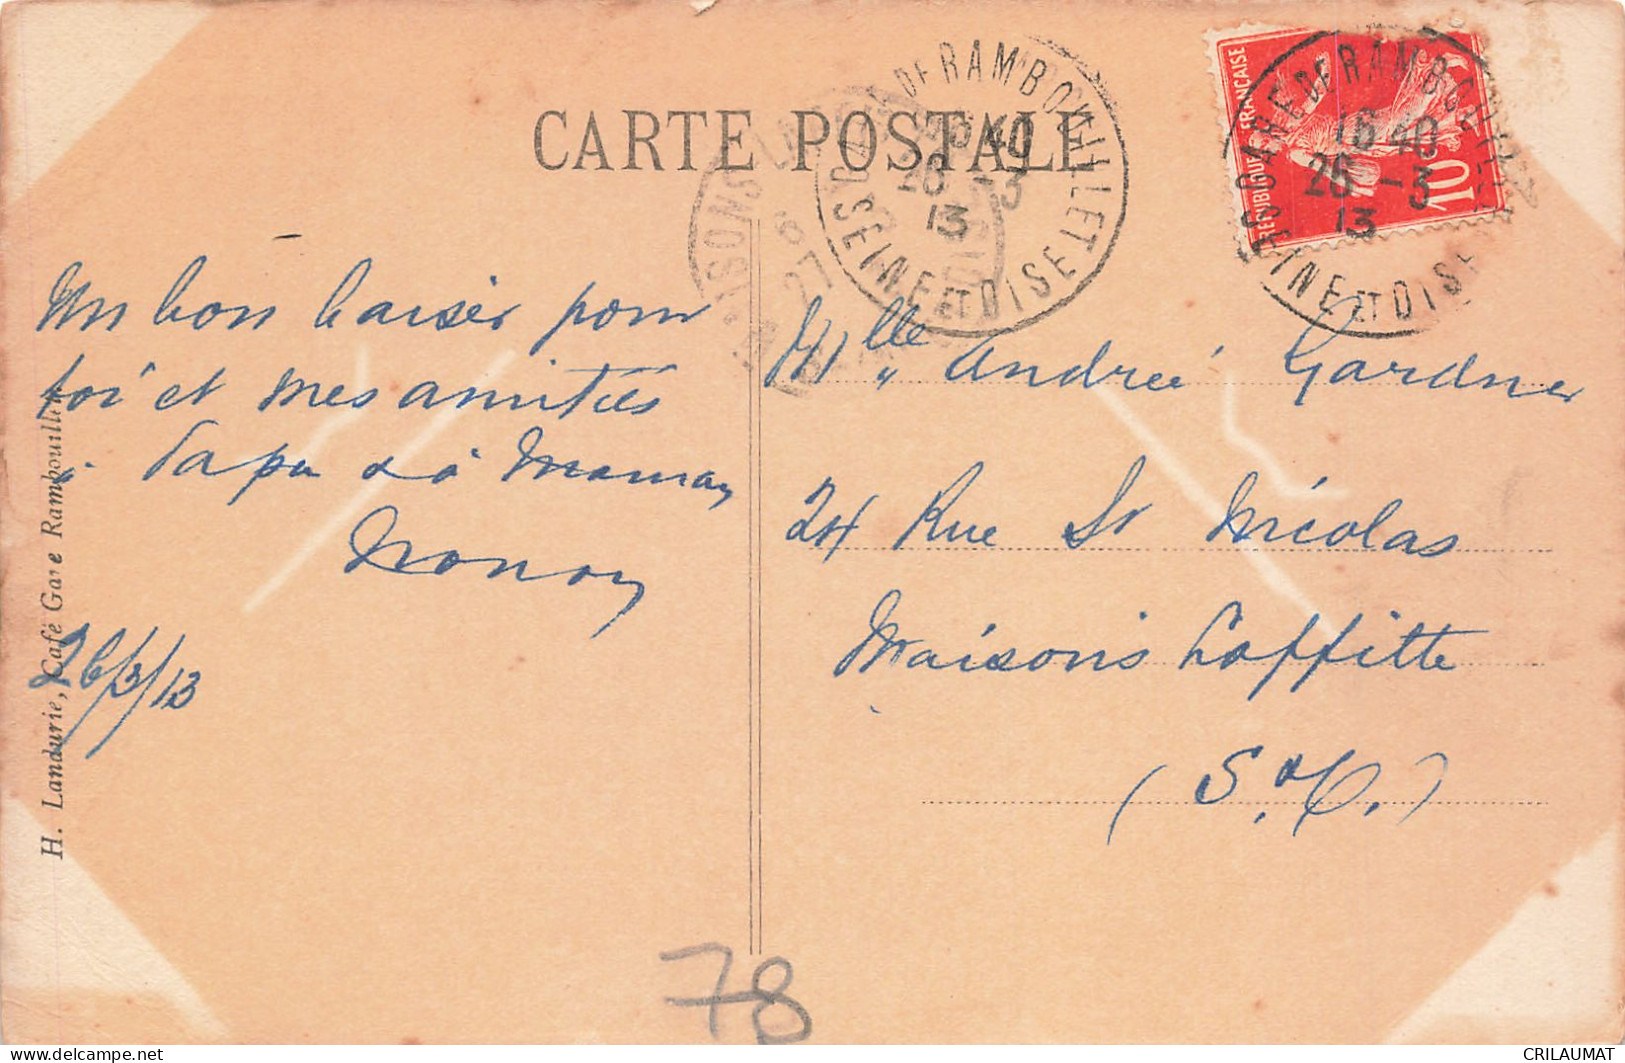 CARTE POSTALE
Un bon baiser pour
toi et mes amitiés
à Papa et à Maman
Nonon
26/3/13
H. Landurie, Café Gare Rambouillet
Mlle Andrée Gardner
24 Rue St Nicolas
Maisons Laffitte
(S. & O.)
GARE DE RAMBOUILLET
16 40
26 - 3
13
SEINE ET OISE
REPUBLIQUE FRANÇAISE
10
GARE DE RAMBOUILLET
16 40
26 - 3
13
SEINE ET OISE
78
CRILAUMAT
www.delcampe.net